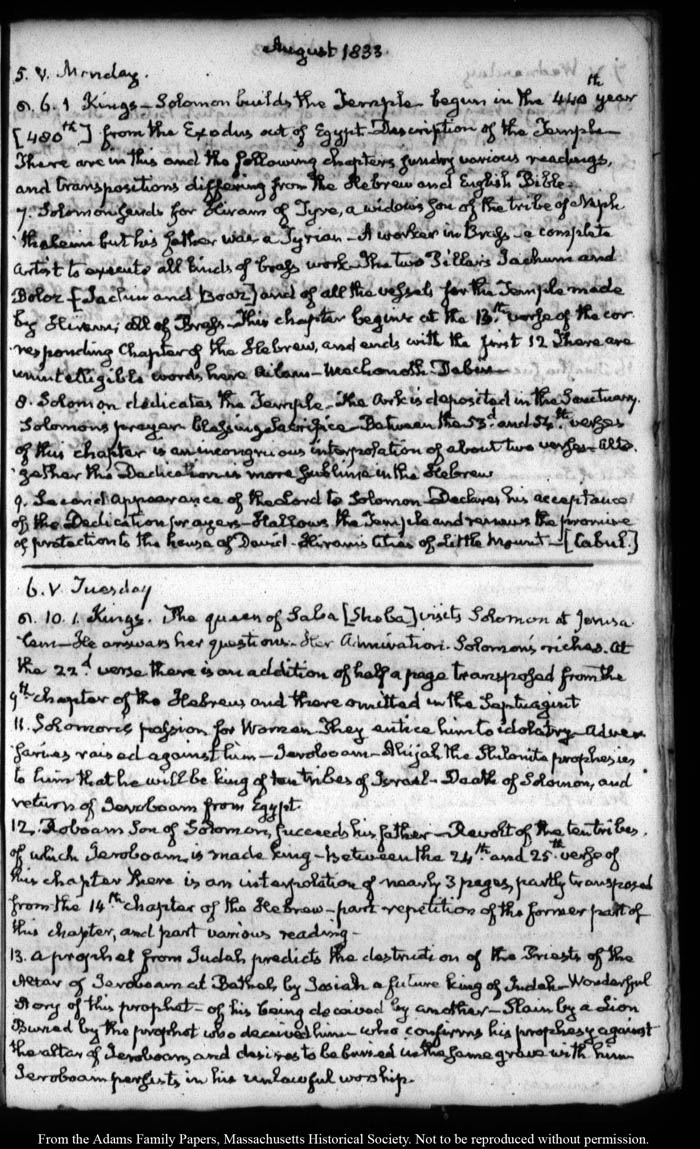 August 1833.
5. V. Monday.
6. 1 Kings — Solomon builds the Temple begun in the 440th year
[480th] from the Exodus out of Egypt. Description of the Temple —
There are in this and the following chapters sundry various readings,
and transpositions differing from the Hebrew and English Bible —
7. Solomon sends for Hiram of Tyre, a widow's son of the tribe of Neph
thaleim but his father was a Tyrian — A worker in Brass — a complete
artist to execute all kinds of brass work. The two Pillars Jachum and
Boloz [Jachin and Boaz] and of all the vessels for the Temple made
by Hiram; all of Brass — This chapter begins at the 13th verse of the cor
responding Chapter of the Hebrew, and ends with the first 12 There are
unintelligible words here Ailam — Mechonoth — Dabir —
8. Solomon dedicates the Temple — The Ark is deposited in the Sanctuary.
Solomons prayer blessing Sacrifice — Between the 53d and 54th verses
of this chapter is an incongruous interpolation of about two verses — Alto
gether the Dedication is more sublime in the Hebrew
9. Second appearance of the Lord to Solomon — Declares his acceptance
of the Dedication prayers — Hallows the Temple and renews the promise
of protection to the house of David — Hiram's Cities of Little Mount — [Cabul.]
6. V. Tuesday
10. 1. Kings. The queen of Saba [Sheba] visits Solomon at Jerusa
lem — He answers her questions — Her Admiration. Solomon's riches. At
the 22d verse there is an addition of half a page transposed from the
9th chapter of the Hebrews and there omitted in the Septuagint
11. Solomon's passion for Women They entice him to idolatry — Adver
saries raised against him — Jeroboam — Ahijah the Shilonite prophesies
to him that he will be king of ten tribes of Israel — Death of Solomon, and
return of Jeroboam from Egypt.
12. Roboam Son of Solomon, succeeds his father — Revolt of the ten tribes,
of which Jeroboam is made king — Between the 24th and 25th verse of
this chapter there is an interpolation of nearly 3 pages, partly transposed
from the 14th chapter of the Hebrew — part repetition of the former part of
this chapter, and part various reading —
13. A prophet from Judah predicts the destruction of the Priests of the
Altar of Jeroboam at Bethel by Josiah a future king of Judah — Wonderful
Story of this prophet — of his being deceived by another — Slain by a Lion
Buried by the prophet who deceived him — who confirms his prophesy against
the altar of Jeroboam, and desires to be buried in the same grave with him
Jeroboam persists in his unlawful worship.
From the Adams Family Papers, Massachusetts Historical Society. Not to be reproduced without permission.